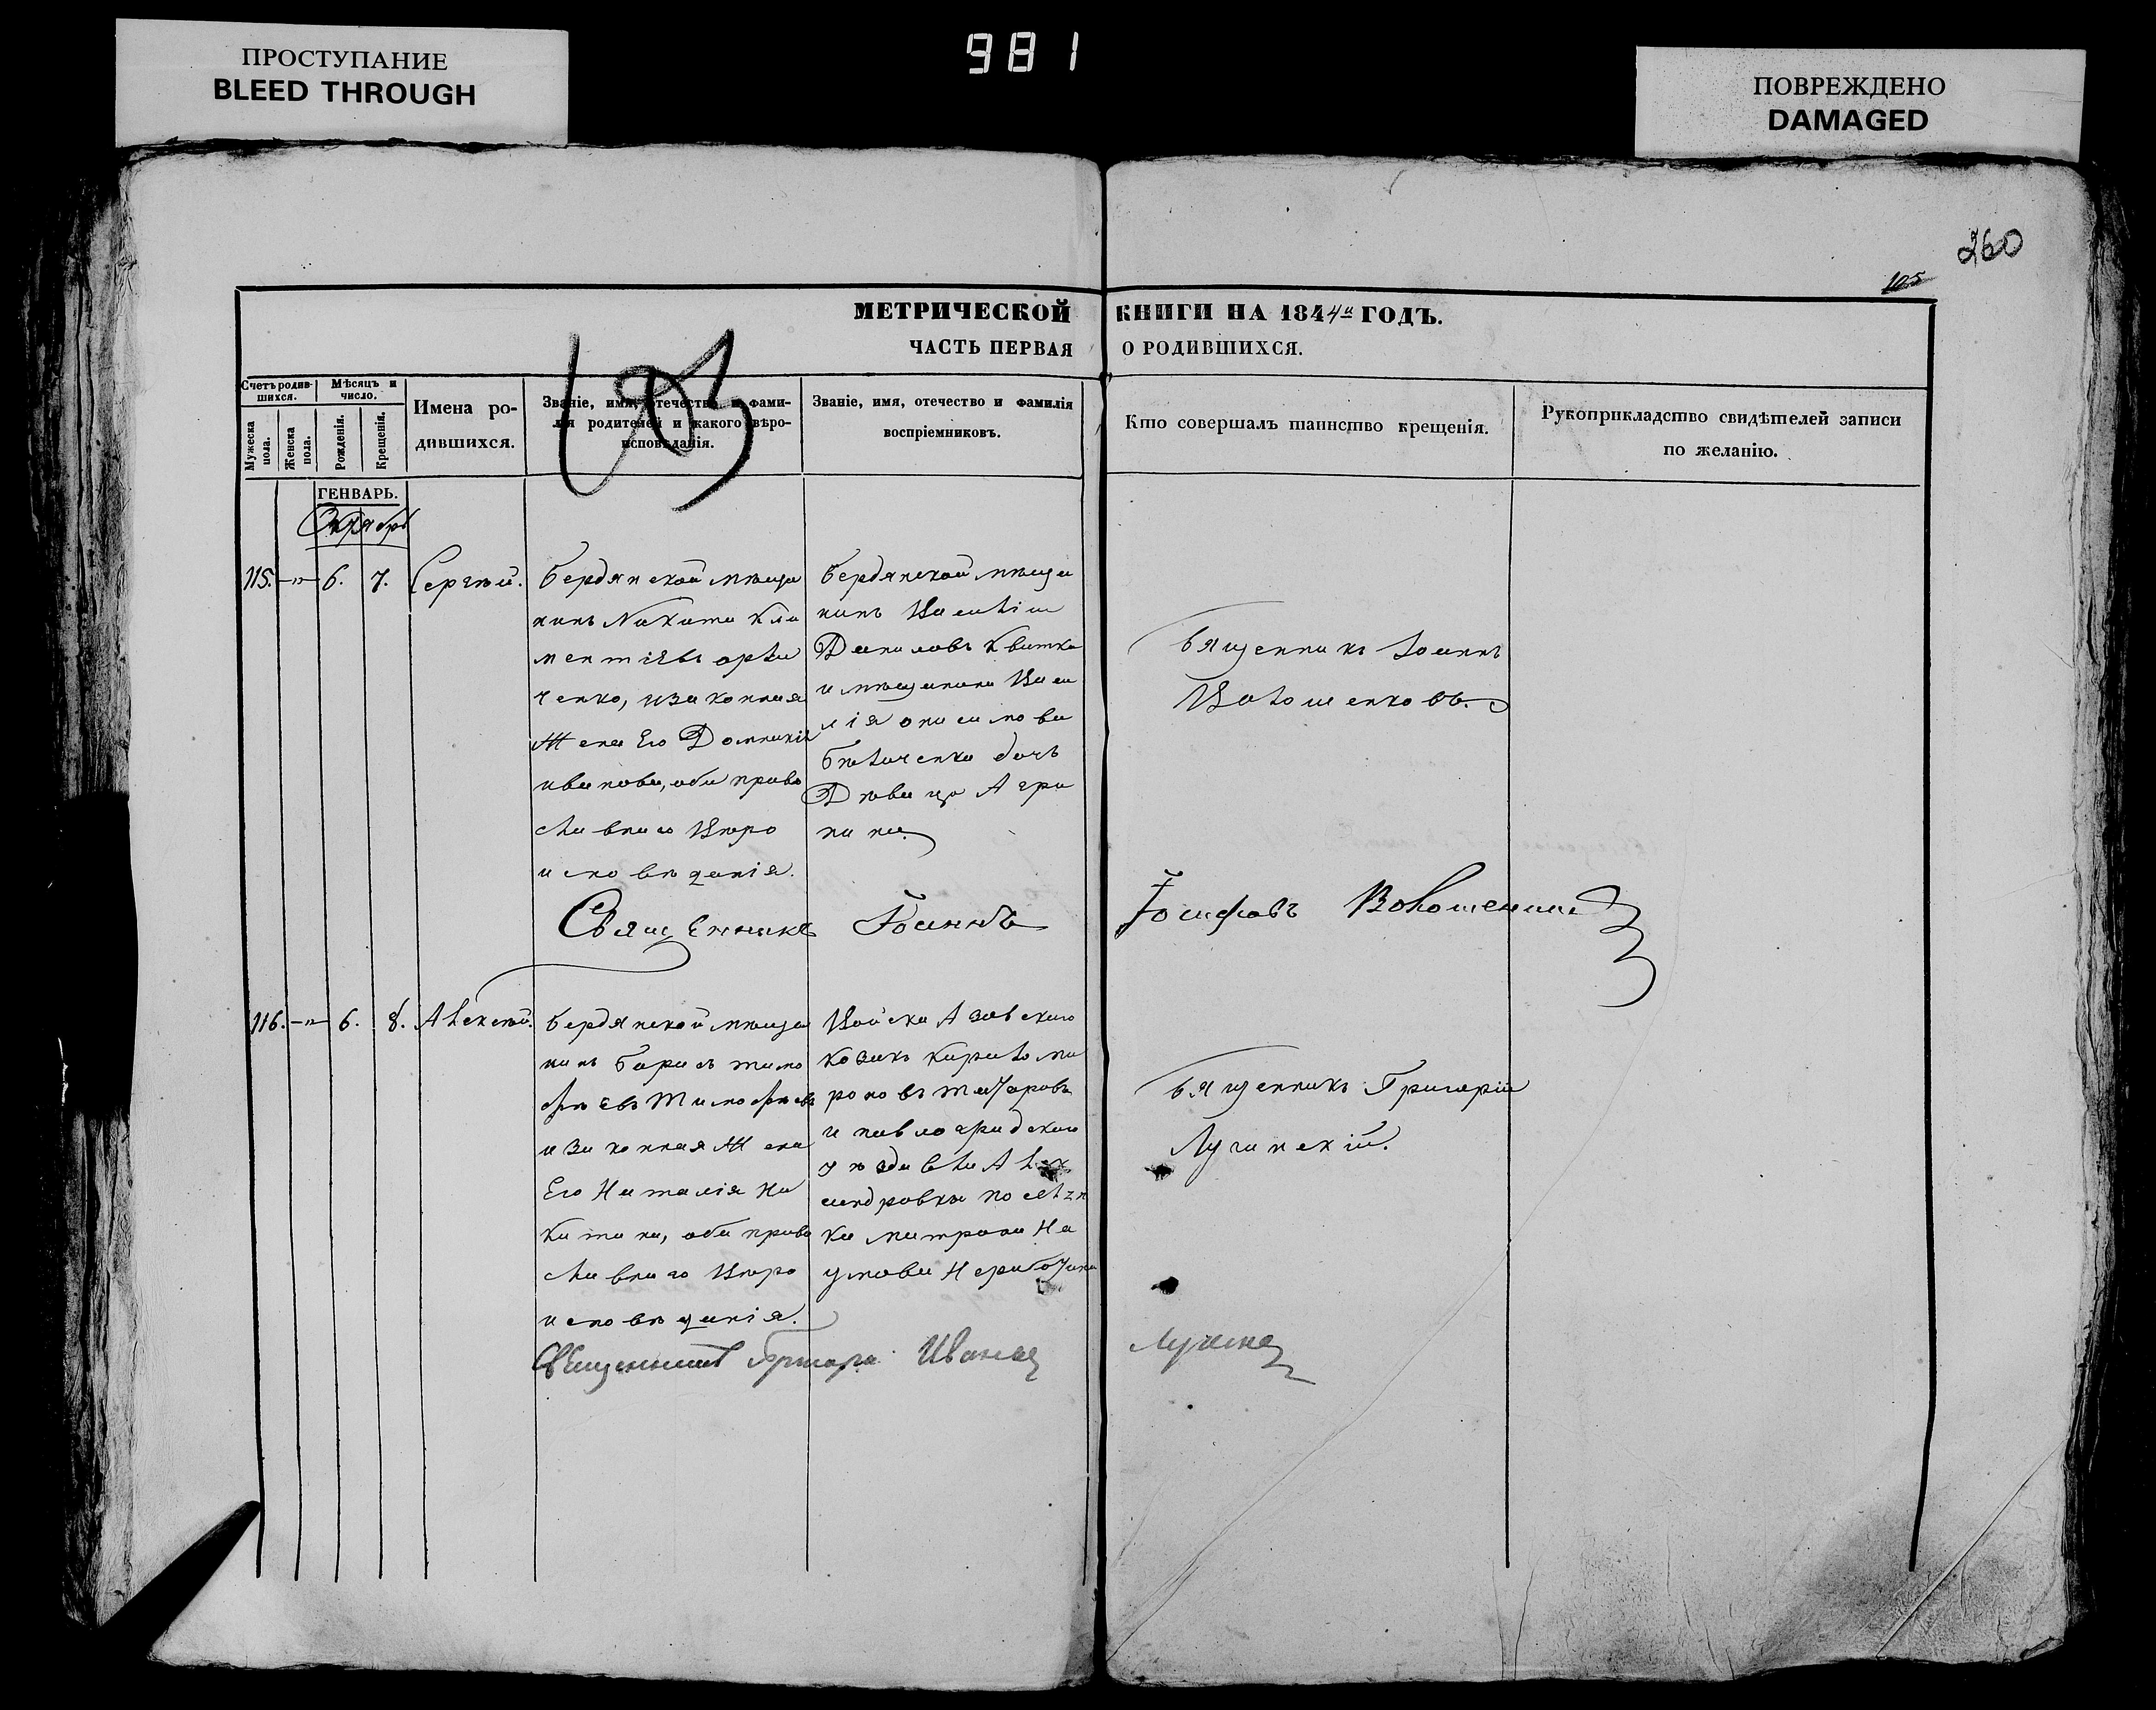 ПРОСТУПАНИЕ
BLEED THROUGH
981
ПОВРЕЖДЕНО
DAMAGED
260
105
МЕТРИЧЕСКОЙ КНИГИ НА 1844й ГОДЪ.
ЧАСТЬ ПЕРВАЯ О РОДИВШИХСЯ.
Счетъ родив-
шихся.
Мужеска пола.
Женска пола.
Мѣсяцъ и
число.
Рожденія.
Крещенія.
Имена ро-
дившихся.
Званіе, имя, отечество и фами-
лія родителей и какого вѣро-
исповѣданія.
Званіе, имя, отечество и фамилія
воспріемниковъ.
Кто совершалъ таинство крещенія.
Рукоприкладство свидѣтелей записи
по желанію.
ГЕНВАРЬ.
Октябрь
115. —„— 6. 7. Сергѣй.
Бердянской мѣща
нинъ Никита Кли
ментіевъ
ченко, и законная
жена Его Домникія
иванова, оба право
славнаго Вѣро
исповѣданія.
Бердянской мѣща
нинъ Василій
Даниловъ Квитка
и мѣщанина Васи
лія
дочь
Дѣвица Агри
пина.
Священникъ Іоаннъ
Волошенковъ.
Священникъ Іоаннъ Іосифовъ Волошенко
116. —„— 6. 8. Алексѣй.
Бердянской мѣща
нинъ Борисъ тимо
фѣевъ Тимофѣевъ
и законная жена
Его Наталія Ни
китина, оба право
славнаго Вѣро
исповѣданія.
Войска Азовскаго
козакъ Кирило Ми
роновъ
и павлоградскаго
уѣзда села Алек
сандровки поселян
ка
умова
Священникъ Григорій
Лучинскій.
Священникъ Григорій Ивановъ